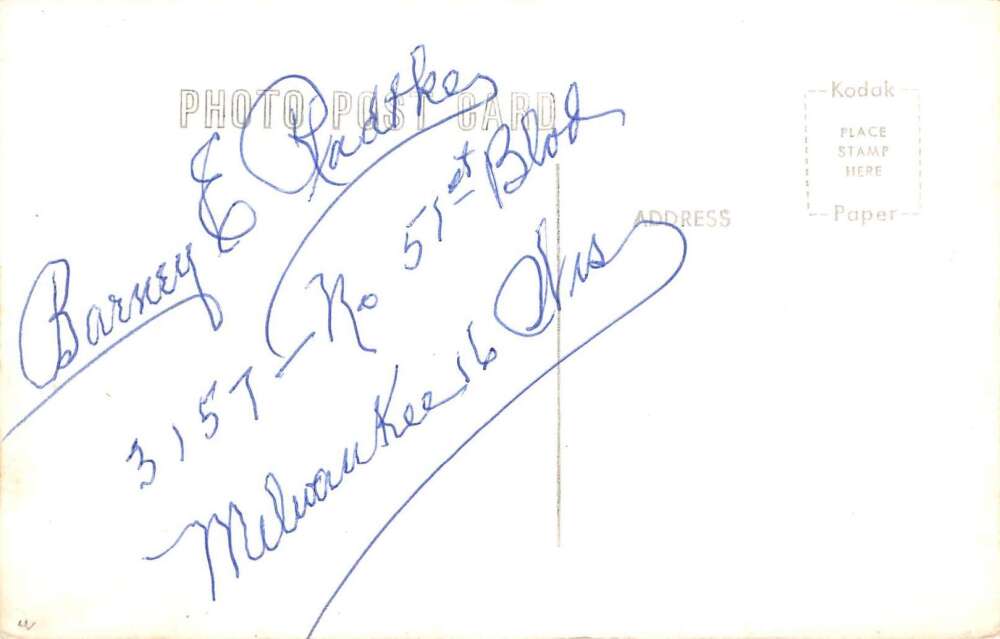 PHOTO POST CARD
Barney E Radtke
3157 - No 51st Blvd
Milwaukee 16 Wis
ADDRESS
Kodak
PLACE
STAMP
HERE
Paper